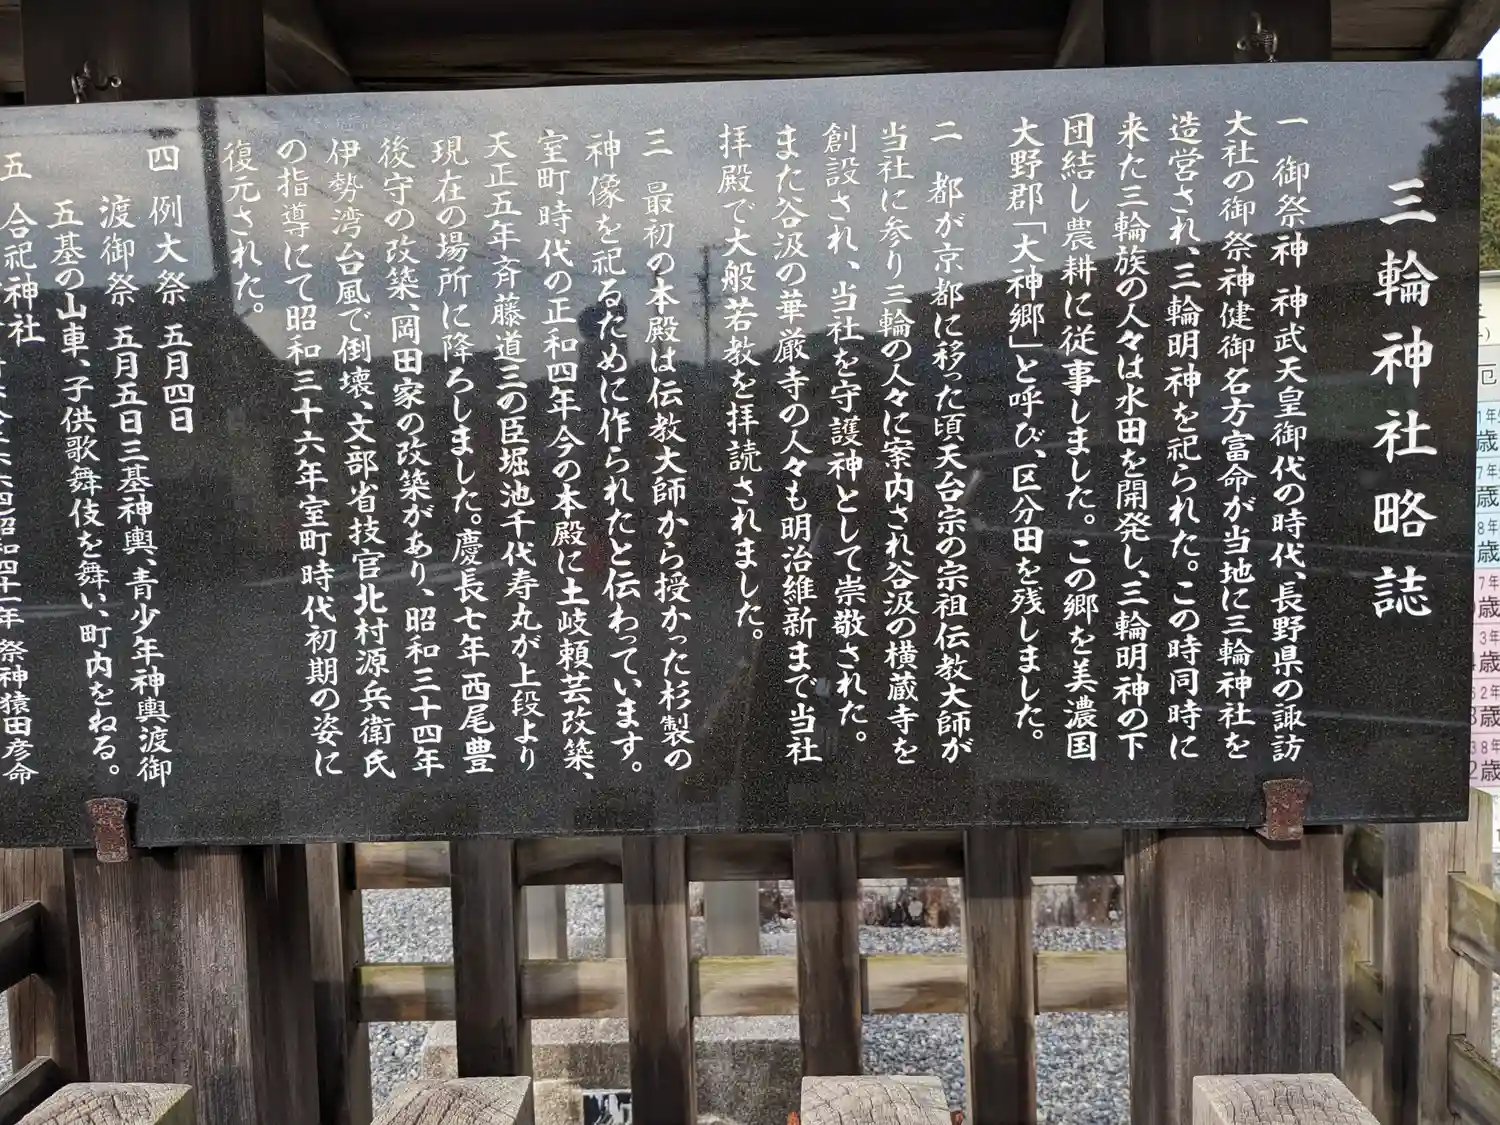 三輪神社略誌
一　御祭神　神武天皇御代の時代、長野県の諏訪
大社の御祭神健御名方富命が当地に三輪神社を
造営され、三輪明神を祀られた。この時同時に
来た三輪族の人々は水田を開発し、三輪明神の下
団結し農耕に従事しました。この郷を美濃国
大野郡「大神郷」と呼び、区分田を残しました。
二　都が京都に移った頃天台宗の宗祖伝教大師が
当社に参り三輪の人々に案内され谷汲の横蔵寺を
創設され、当社を守護神として崇敬された。
また谷汲の華厳寺の人々も明治維新まで当社
拝殿で大般若教を拝読されました。
三　最初の本殿は伝教大師から授かった杉製の
神像を祀るために作られたと伝わっています。
室町時代の正和四年今の本殿に土岐頼芸改築、
天正五年斉藤道三の臣堀池千代寿丸が上段より
現在の場所に降ろしました。慶長七年西尾豊
後守の改築、岡田家の改築があり、昭和三十四年
伊勢湾台風で倒壊、文部省技官北村源兵衛氏
の指導にて昭和三十六年室町時代初期の姿に
復元された。
四　例大祭　五月四日
渡御祭　五月五日三基神輿、青少年神輿渡御
五基の山車、子供歌舞伎を舞い町内をねる。
五　合祀神社
昭和四十一年　祭神猿田彦命